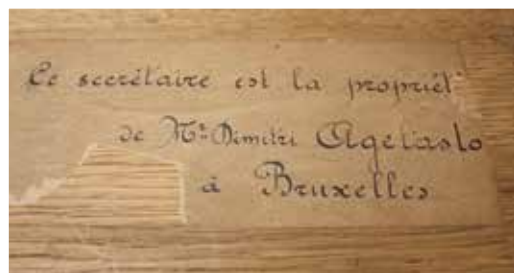 Ce secrétaire est la propriét
de Mr Dimitri Agelasto
à Bruxelles